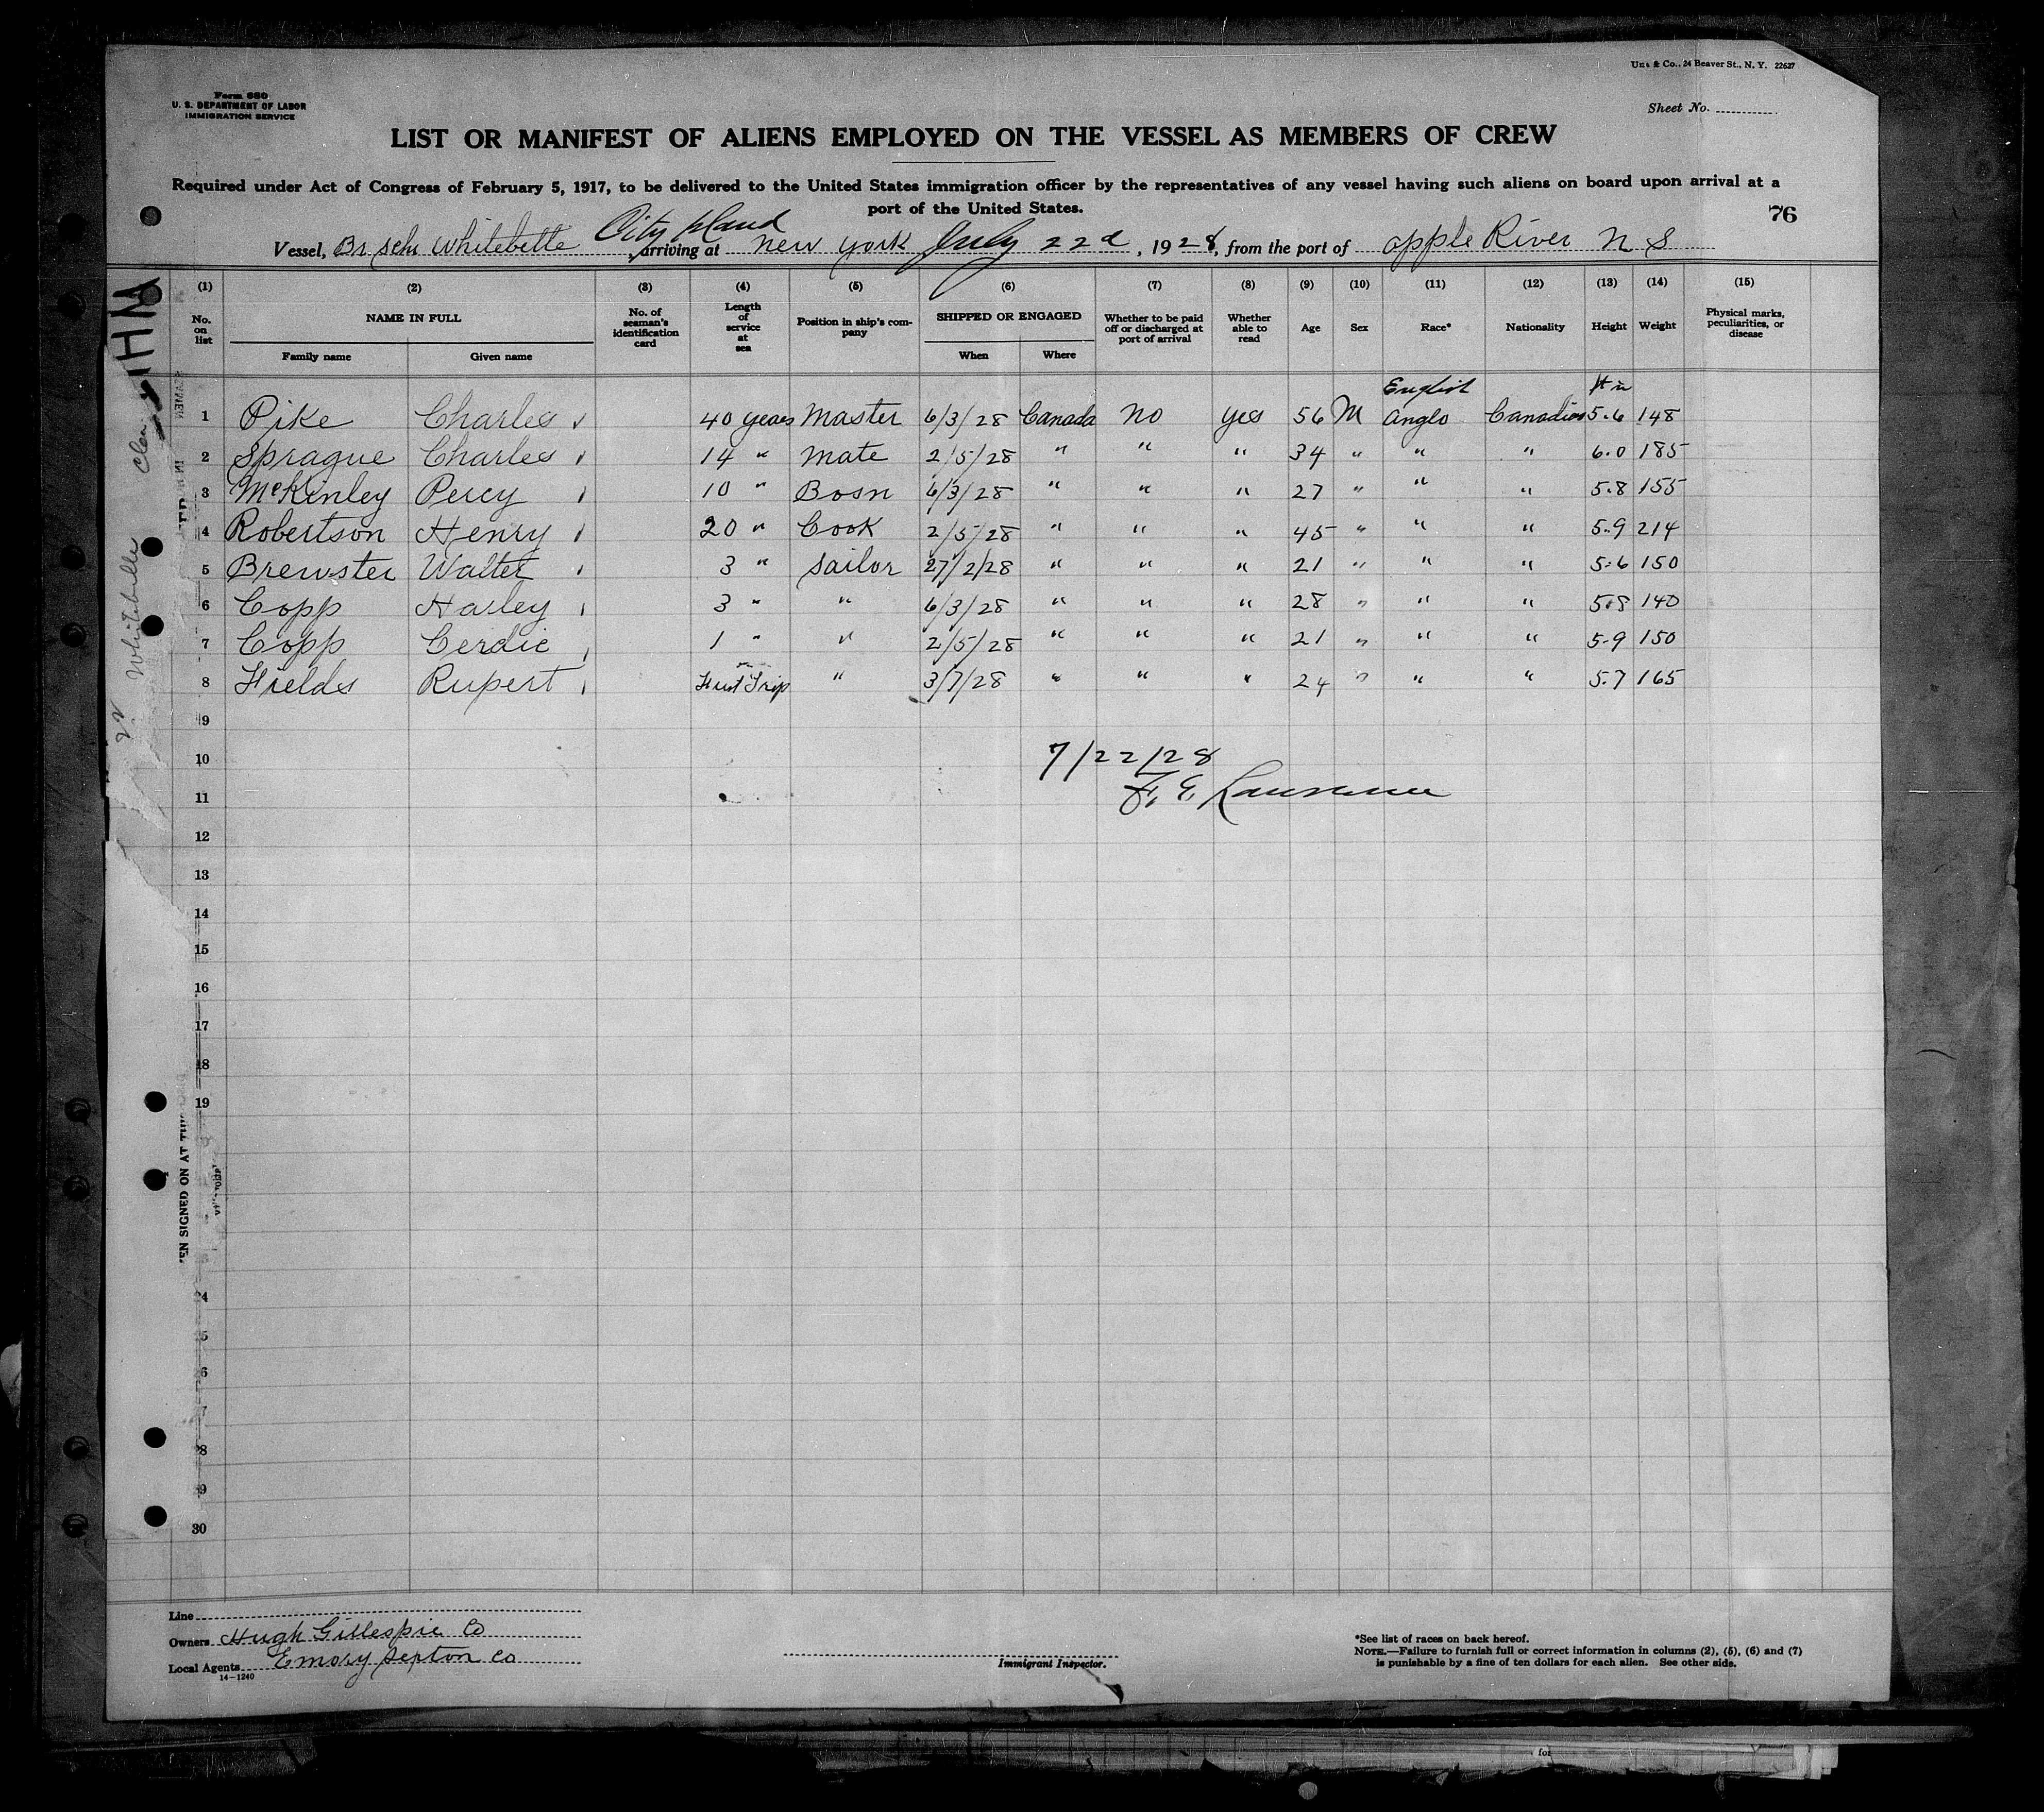 Form 680
U. S. DEPARTMENT OF LABOR
IMMIGRATION SERVICE
& Co., 24 Beaver St., N. Y. 22627
Sheet No.
LIST OR MANIFEST OF ALIENS EMPLOYED ON THE VESSEL AS MEMBERS OF CREW
Required under Act of Congress of February 5, 1917, to be delivered to the United States immigration officer by the representatives of any vessel having such aliens on board upon arrival at a
port of the United States.
76
City Island
Vessel, Br Schr Whitebelle, arriving at New York July 22d, 1928, from the port of Apple River N S
(1) (2) (3) (4) (5) (6) (7) (8) (9) (10) (11) (12) (13) (14) (15)
No. on list NAME IN FULL Family name Given name No. of seaman's identification card Length of service at sea Position in ship's company SHIPPED OR ENGAGED When Where Whether to be paid off or discharged at port of arrival Whether able to read Age Sex Race* Nationality Height Weight Physical marks, peculiarities, or disease
English ft in
1 Pike Charles 40 years Master 6/3/28 Canada No yes 56 M Anglo Canadian 5.6 148
2 Sprague Charles 14 " Mate 2/5/28 " " " 34 " " " 6.0 185
3 McKinley Percy 10 " Bosn 6/3/28 " " " 27 " " " 5.8 155
4 Robertson Henry 20 " Cook 2/5/28 " " " 45 " " " 5.9 214
5 Brewster Walter 3 " Sailor 27/2/28 " " " 21 " " " 5.6 150
6 Copp Harley 3 " " 6/3/28 " " " 28 " " " 5.8 140
7 Copp Cerdic 1 " " 2/5/28 " " " 21 " " " 5.9 150
8 Fields Rupert First Trip " 3/7/28 " " " 24 " " " 5.7 165
9
10
7/22/28
11
F. E. Lawrence
12
13
14
15
16
17
18
19
24
25
26
27
28
29
30
EN SIGNED ON AT THIS
Whitebelle
Line
Owners Hugh Gillespie Co
Local Agents Emory Sexton Co
14—1240
Immigrant Inspector.
*See list of races on back hereof.
NOTE.—Failure to furnish full or correct information in columns (2), (5), (6) and (7)
is punishable by a fine of ten dollars for each alien. See other side.